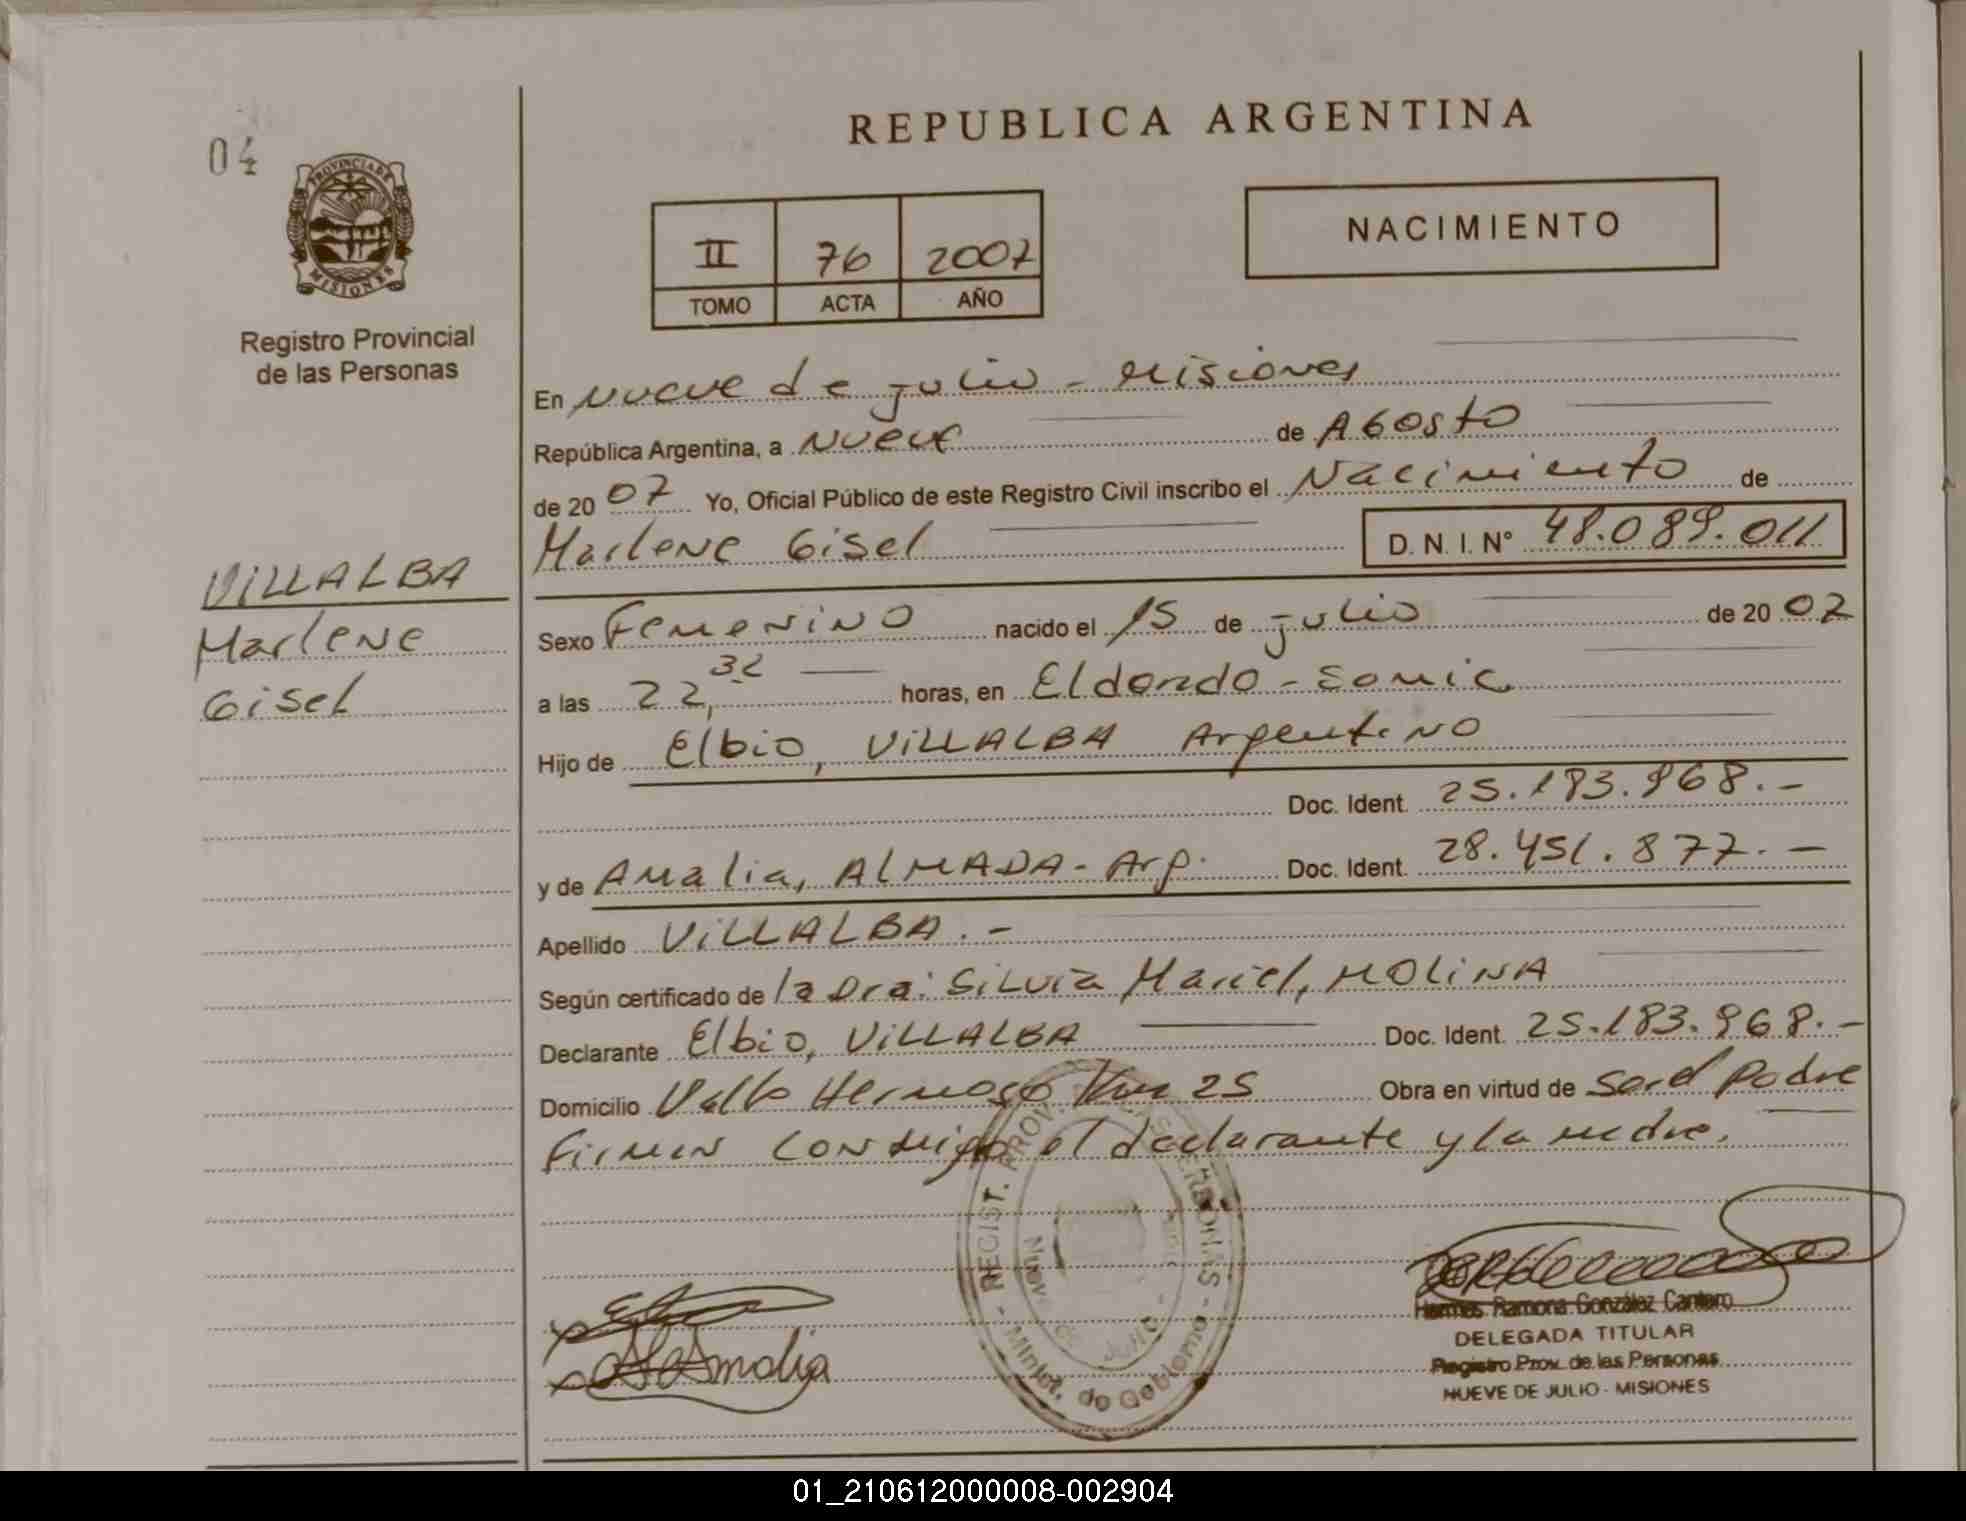 04
PROVINCIA DE
MISIONES
Registro Provincial
de las Personas
VILLALBA
Marlene
Gisel
REPUBLICA ARGENTINA
II 76 2007
TOMO ACTA AÑO
NACIMIENTO
En Nueve de julio - Misiones
República Argentina, a Nueve de Agosto
de 2007 Yo, Oficial Público de este Registro Civil inscribo el Nacimiento de
Marlene Gisel D. N. I. N° 48.089.011
Sexo Femenino nacido el 15 de julio de 2007
a las 22,32 horas, en Eldorado - Samic
Hijo de Elbio, VILLALBA Argentino
Doc. Ident. 25.183.968.-
y de Amalia, ALMADA - Arg. Doc. Ident. 28.451.877.-
Apellido VILLALBA.-
Según certificado de la Dra: Silvia Mariel, MOLINA
Declarante Elbio, VILLALBA Doc. Ident. 25.183.968.-
Domicilio Valle Hermoso Km 25 Obra en virtud de ser el Padre
Firman conmigo el declarante y la madre.
REGIST. PROV. DE LAS PERSONAS
Nueve de Julio
Minist. de Gobierno
Amalia
Hermes Ramona González Cantero
DELEGADA TITULAR
Registro Prov. de las Personas
NUEVE DE JULIO - MISIONES
01_210612000008-002904